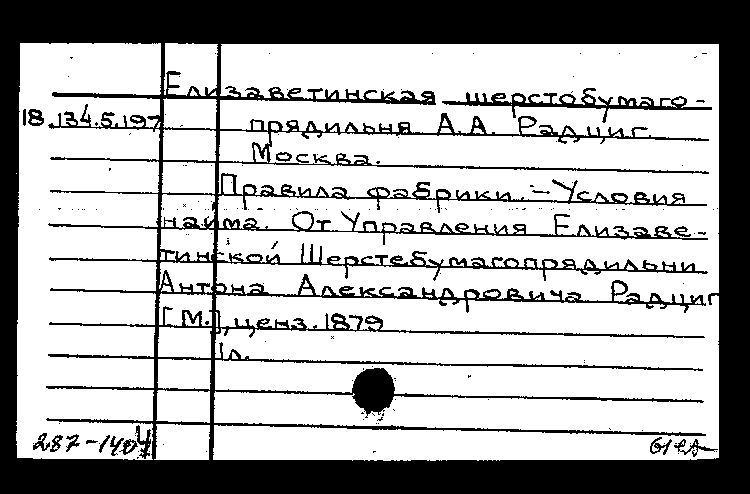 Елизаветинская шерстобумаго-
18.134.5.197 прядильня А.А. Радциг.
Москва.
Правила фабрики. – Условия
найма. От Управления Елизаве-
тинской Шерстебумагопрядильни
Антона Александровича Радциг
[М.], ценз. 1879
1л.
287-1404